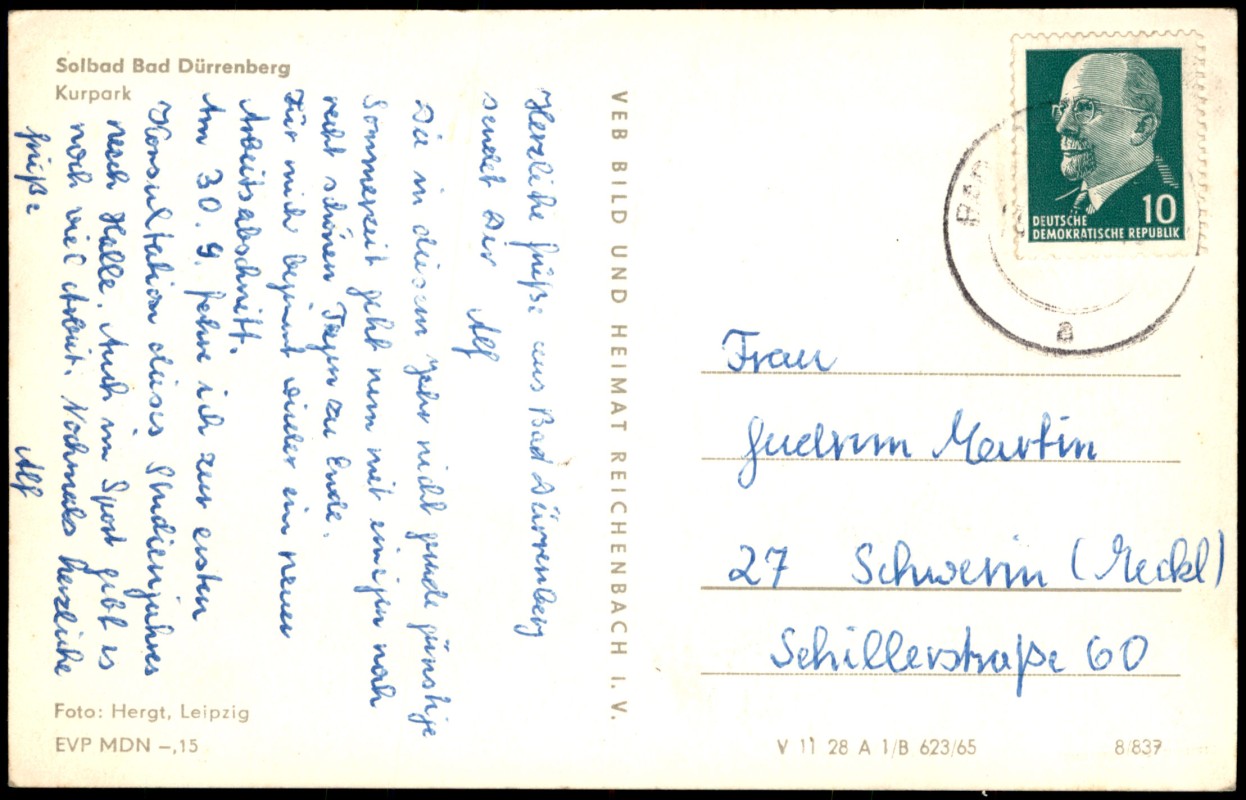 Solbad Bad Dürrenberg
Kurpark
Herzliche Grüße aus Bad Dürrenberg
sendet Dir Alf
Die in diesem Jahr nicht gerade günstige
Sommerzeit geht nun mit einigen noch
recht schönen Tagen zu Ende.
Für mich beginnt wieder ein neuer
Arbeitsabschnitt.
Am 30. 9. fahre ich zur ersten
Konsultation dieses Studienjahres
nach Halle. Auch im Sport gibt es
noch viel Arbeit. Nochmals herzliche
Grüße
Alf
Foto: Hergt, Leipzig
EVP MDN –,15
VEB BILD UND HEIMAT REICHENBACH I. V.
10
DEUTSCHE
DEMOKRATISCHE REPUBLIK
a
Frau
Gudrun Martin
27 Schwerin (Meckl)
Schillerstraße 60
V 11 28 A 1/B 623/65
8/837